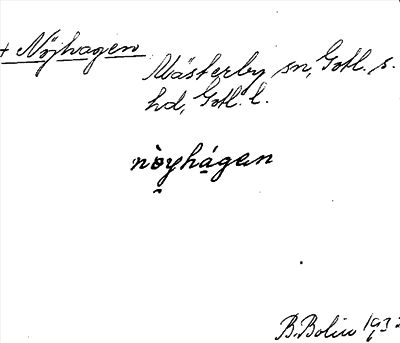 + Nöjhagen
Mästerby sn, Gotl. s.
hd, Gotl. l.
nòyhágan
B. Bolin 193